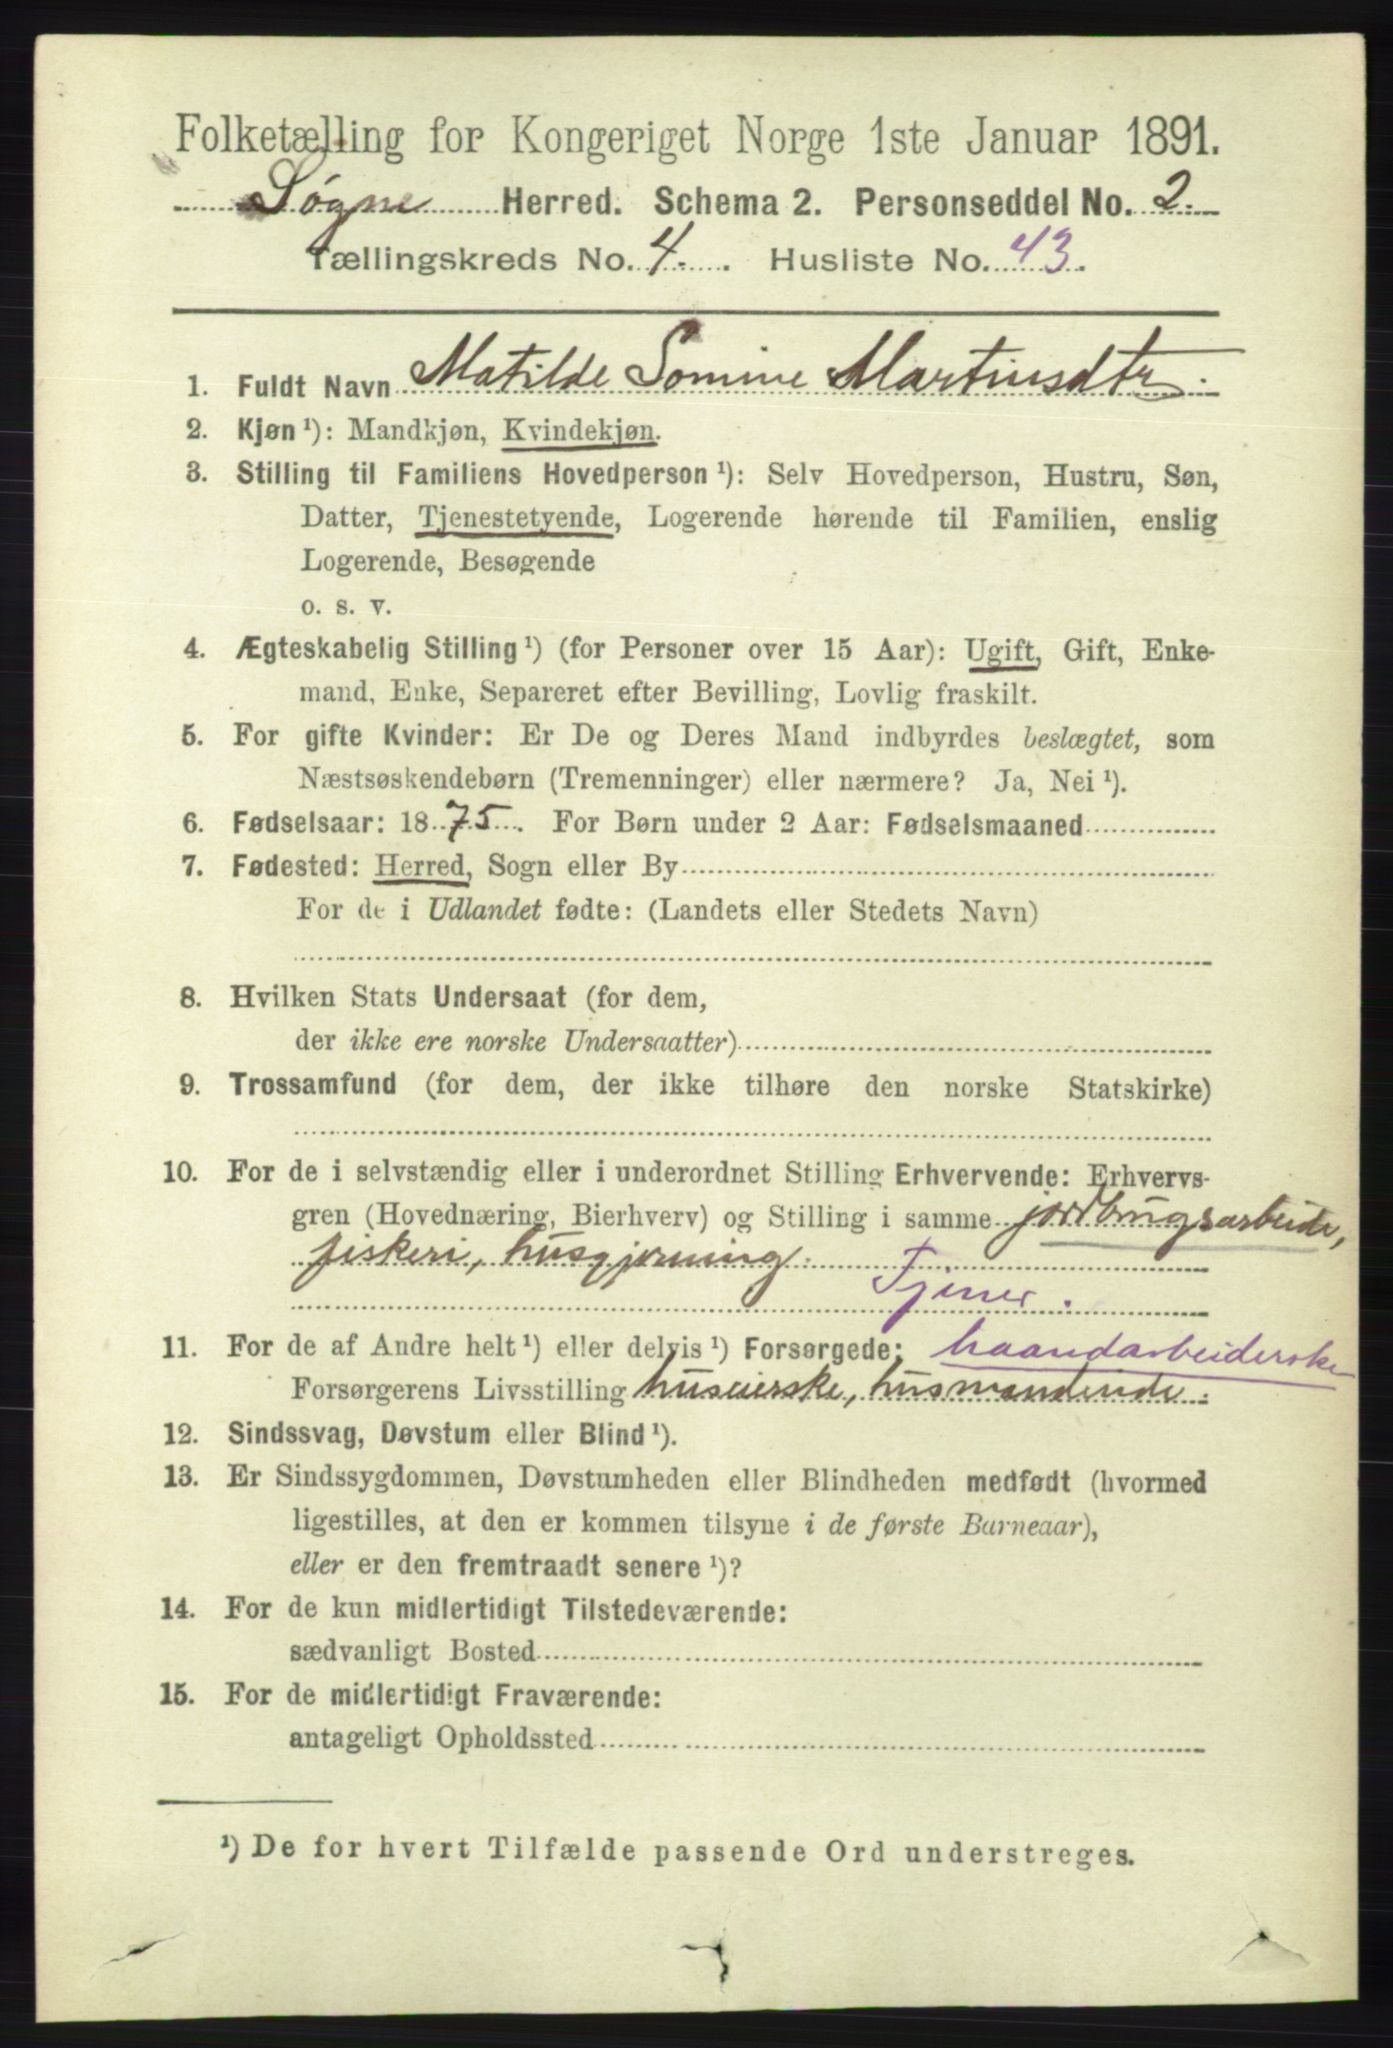 Folketælling for Kongeriget Norge 1ste Januar 1891.
Søgne Herred. Schema 2. Personseddel No. 2.
Tællingskreds No. 4. Husliste No. 43.
1. Fuldt Navn Matilde Somine Martinsdtr.
2. Kjøn ¹): Mandkjøn, Kvindekjøn.
3. Stilling til Familiens Hovedperson ¹): Selv Hovedperson, Hustru, Søn,
Datter, Tjenestetyende, Logerende hørende til Familien, enslig
Logerende, Besøgende
o. s. v.
4. Ægteskabelig Stilling ¹) (for Personer over 15 Aar): Ugift, Gift, Enke-
mand, Enke, Separeret efter Bevilling, Lovlig fraskilt.
5. For gifte Kvinder: Er De og Deres Mand indbyrdes beslægtet, som
Næstsøskendebørn (Tremenninger) eller nærmere? Ja, Nei ¹).
6. Fødselsaar: 1875. For Børn under 2 Aar: Fødselsmaaned
7. Fødested: Herred, Sogn eller By
For de i Udlandet fødte: (Landets eller Stedets Navn)
8. Hvilken Stats Undersaat (for dem,
der ikke ere norske Undersaatter)
9. Trossamfund (for dem, der ikke tilhøre den norske Statskirke)
10. For de i selvstændig eller i underordnet Stilling Erhvervende: Erhvervs-
gren (Hovednæring, Bierhverv) og Stilling i samme jordbrugsarbeide,
fiskeri, husgjerning.
Tjener.
11. For de af Andre helt ¹) eller delvis ¹) Forsørgede: haandarbeiderske
Forsørgerens Livsstilling huseierske,
12. Sindssvag, Døvstum eller Blind ¹).
13. Er Sindssygdommen, Døvstumheden eller Blindheden medfødt (hvormed
ligestilles, at den er kommen tilsyne i de første Barneaar),
eller er den fremtraadt senere ¹)?
14. For de kun midlertidigt Tilstedeværende:
sædvanligt Bosted
15. For de midlertidigt Fraværende:
antageligt Opholdssted
¹) De for hvert Tilfælde passende Ord understreges.